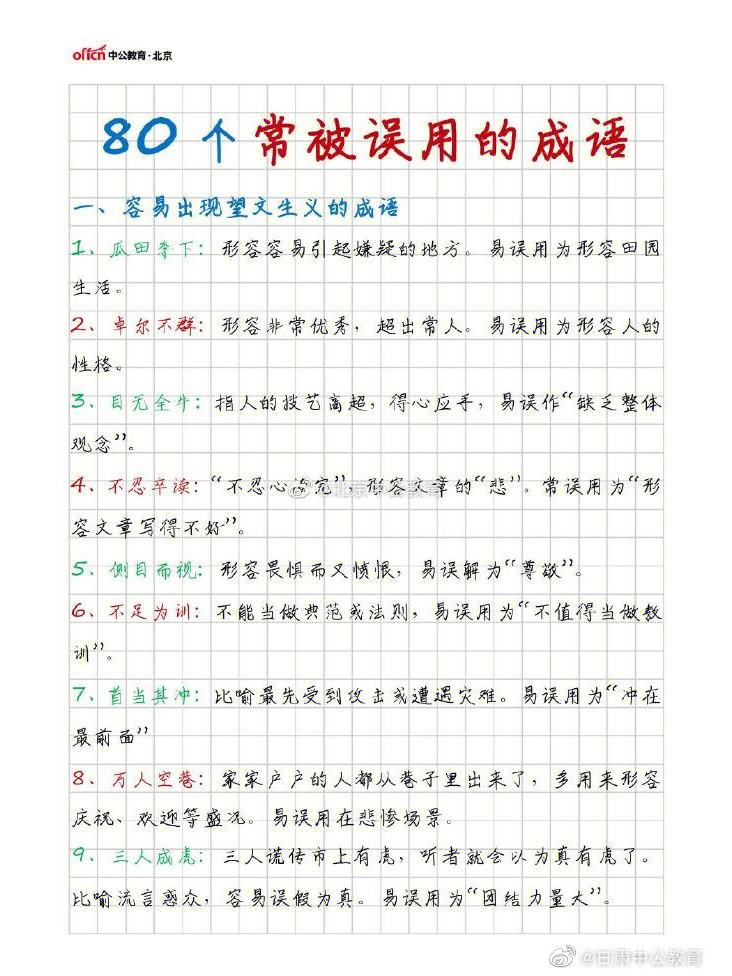 offcn中公教育·北京
80个常被误用的成语
一、容易出现望文生义的成语
1、瓜田李下：形容容易引起嫌疑的地方。易误用为形容田园
生活。
2、卓尔不群：形容非常优秀，超出常人。易误用为形容人的
性格。
3、目无全牛：指人的技艺高超，得心应手，易误作“缺乏整体
观念”。
4、不忍卒读：“不忍心读完”，形容文章的“悲”。常误用为“形
容文章写得不好”。
@北京中公教育
5、侧目而视：形容畏惧而又愤恨，易误解为“尊敬”。
6、不足为训：不能当做典范或法则，易误用为“不值得当做教
训”。
7、首当其冲：比喻最先受到攻击或遭遇灾难。易误用为“冲在
最前面”
8、万人空巷：家家户户的人都从巷子里出来了，多用来形容
庆祝、欢迎等盛况。易误用在悲惨场景。
9、三人成虎：三人谎传市上有虎，听者就会以为真有虎了。
比喻流言惑众，容易误假为真。易误用为“团结力量大”。
@甘肃中公教育